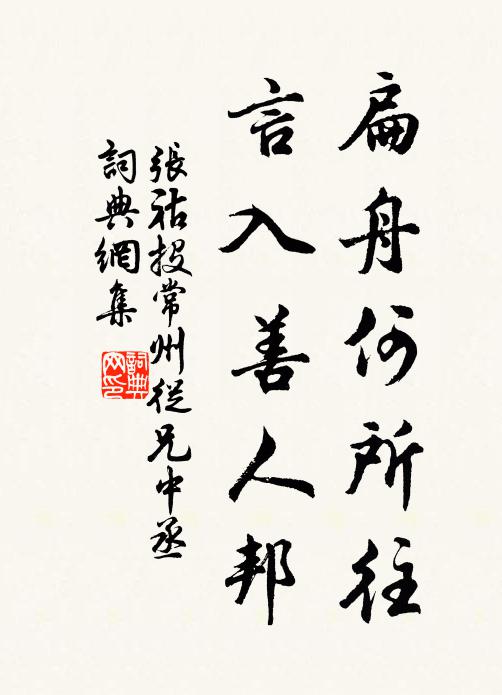 扁舟何所往
言入善人邦
張祜投常州從兄中丞
詞典網集
詞典网印